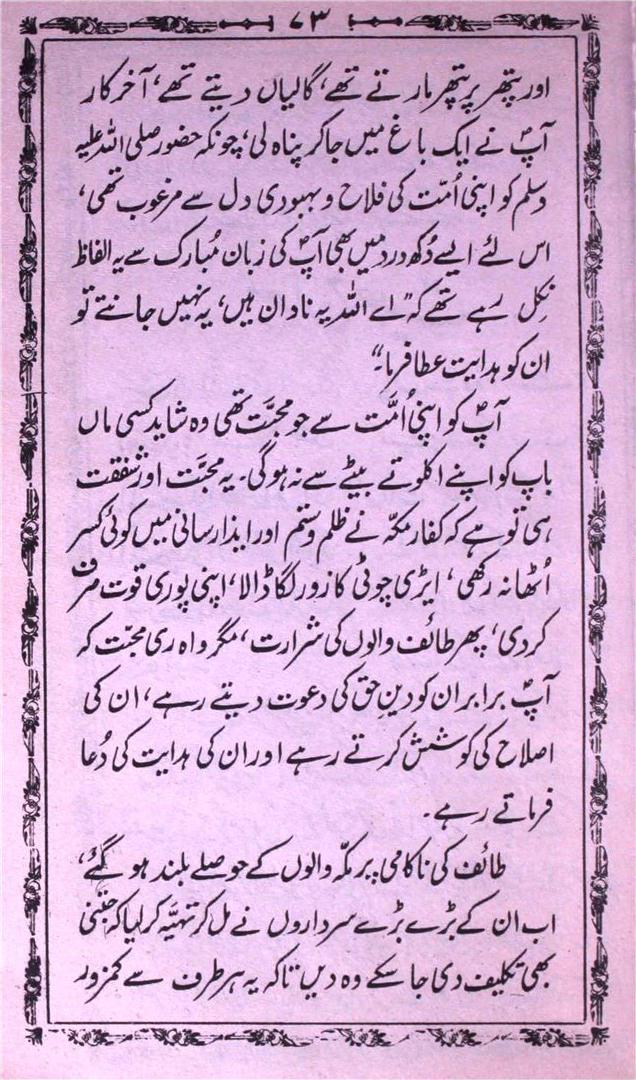 ۷۳
اور پتھر پر پتھر مارتے تھے، گالیاں دیتے تھے، آخر کار
آپؐ نے ایک باغ میں جا کر پناہ لی، چونکہ حضور صلی اللہ علیہ
وسلم کو اپنی اُمّت کی فلاح و بہبودی دل سے مرغوب تھی،
اس لئے ایسے دُکھ درد میں بھی آپؐ کی زبان مُبارک سے یہ الفاظ
نِکل رہے تھے کہ ”اے اللہ یہ نادان ہیں، یہ نہیں جانتے تو
ان کو ہدایت عطا فرما۔“
آپؐ کو اپنی اُمَّت سے جو محبَّت تھی وہ شاید کسی ماں
باپ کو اپنے اکلوتے بیٹے سے نہ ہوگی۔ یہ محبَّت اور شفقت
ہی تو ہے کہ کفار مکّہ نے ظلم و ستم اور ایذا رسانی میں کوئی کسر
اُٹھا نہ رکھی، ایڑی چوٹی کا زور لگا ڈالا، اپنی پوری قوت صرف
کر دی، پھر طائف والوں کی شرارت، مگر واہ ری محبّت کہ
آپؐ برابر ان کو دینِ حق کی دعوت دیتے رہے، ان کی
اصلاح کی کوشش کرتے رہے اور ان کی ہدایت کی دُعا
فرماتے رہے۔
طائف کی ناکامی پر مکّہ والوں کے حوصلے بلند ہو گئے،
اب ان کے بڑے بڑے سرداروں نے مل کر تہیَّہ کر لیا کہ جتنی
بھی تکلیف دی جا سکے وہ دیں تاکہ یہ ہر طرف سے کمزور